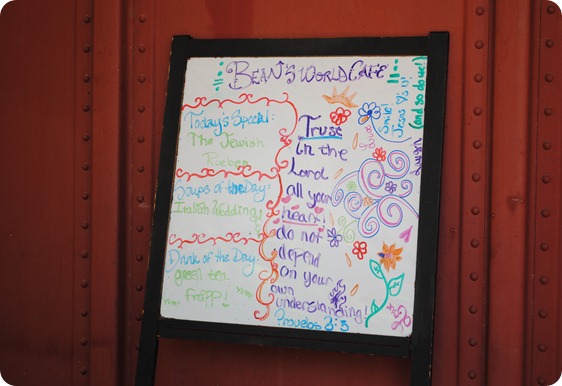 BEAN'S WORLD CAFE
Today's Special:
The Jewish
Rueben
Soups of the Day:
Italian Wedding!
Drink of the Day:
green tea
frapp!
yum!
yum!
Trust
in the
Lord
all your
heart!
do not
depend
on your
own
understanding!
Proverbs 3:5
Smile!
Jesus ♡'s U!
(and so do we!)